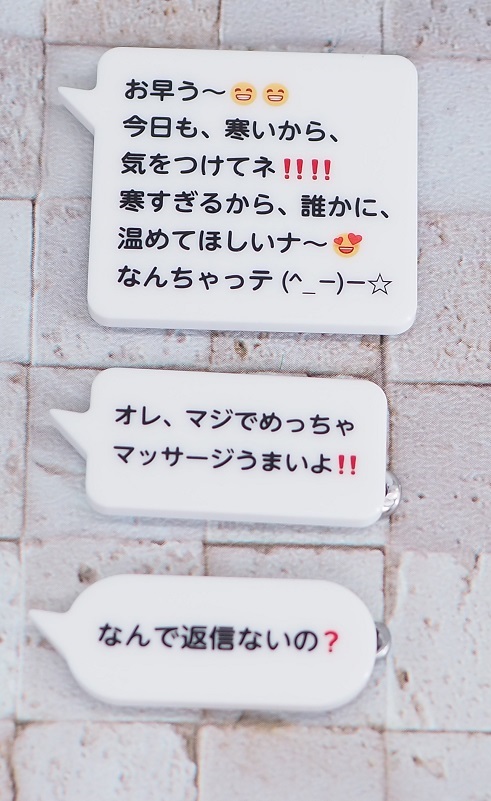 お早う〜😄😄
今日も、寒いから、
気をつけてネ‼‼
寒すぎるから、誰かに、
温めてほしいナ〜😍
なんちゃっテ(^_−)−☆
オレ、マジでめっちゃ
マッサージうまいよ‼
なんで返信ないの？